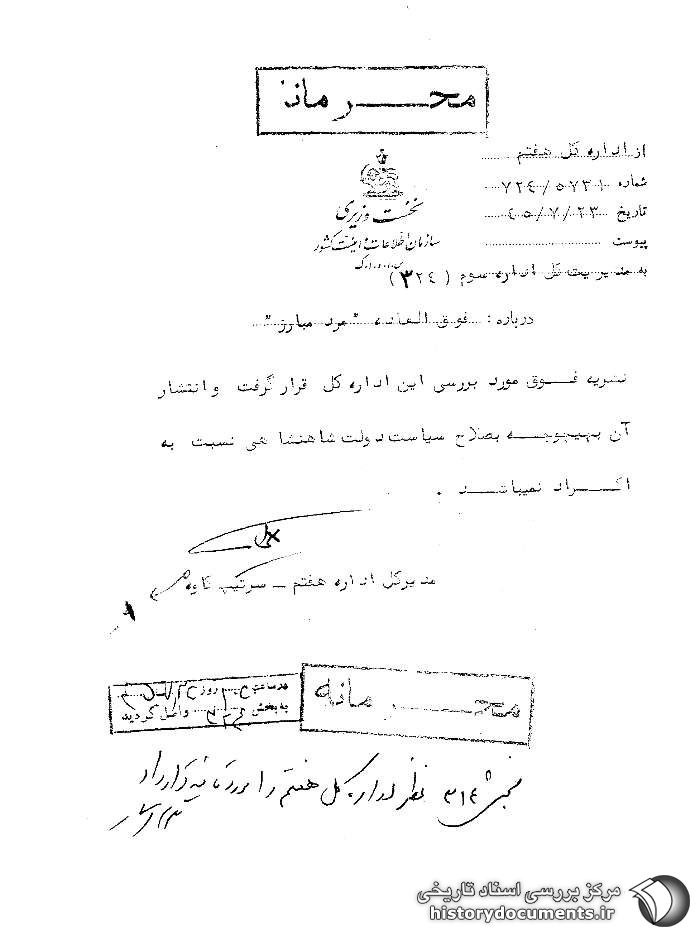 محرمانه
از اداره کل هفتم
شماره ۷۲۴/۵۷۳۱
تاریخ ۴۵/۷/۲۳
پیوست
نخست وزیری
سازمان اطلاعات و امنیت کشور
س.ا.و.ا.ک
به مدیریت کل اداره سوم (۳۲۴)
درباره : فوق العاده "مرد مبارز"
نشریه فوق مورد بررسی این اداره کل قرار گرفت و انتشار
آن بهیچوجه بصلاح سیاست دولت شاهنشاهی نسبت به
اکراد نمیباشد .
مدیرکل اداره هفتم – سرتیپ کاوه
محرمانه
در ساعت روز
به بخش واصل گردید
نظر اداره کل هفتم را مورد قرار داد
مرکز بررسی اسناد تاریخی
historydocuments.ir